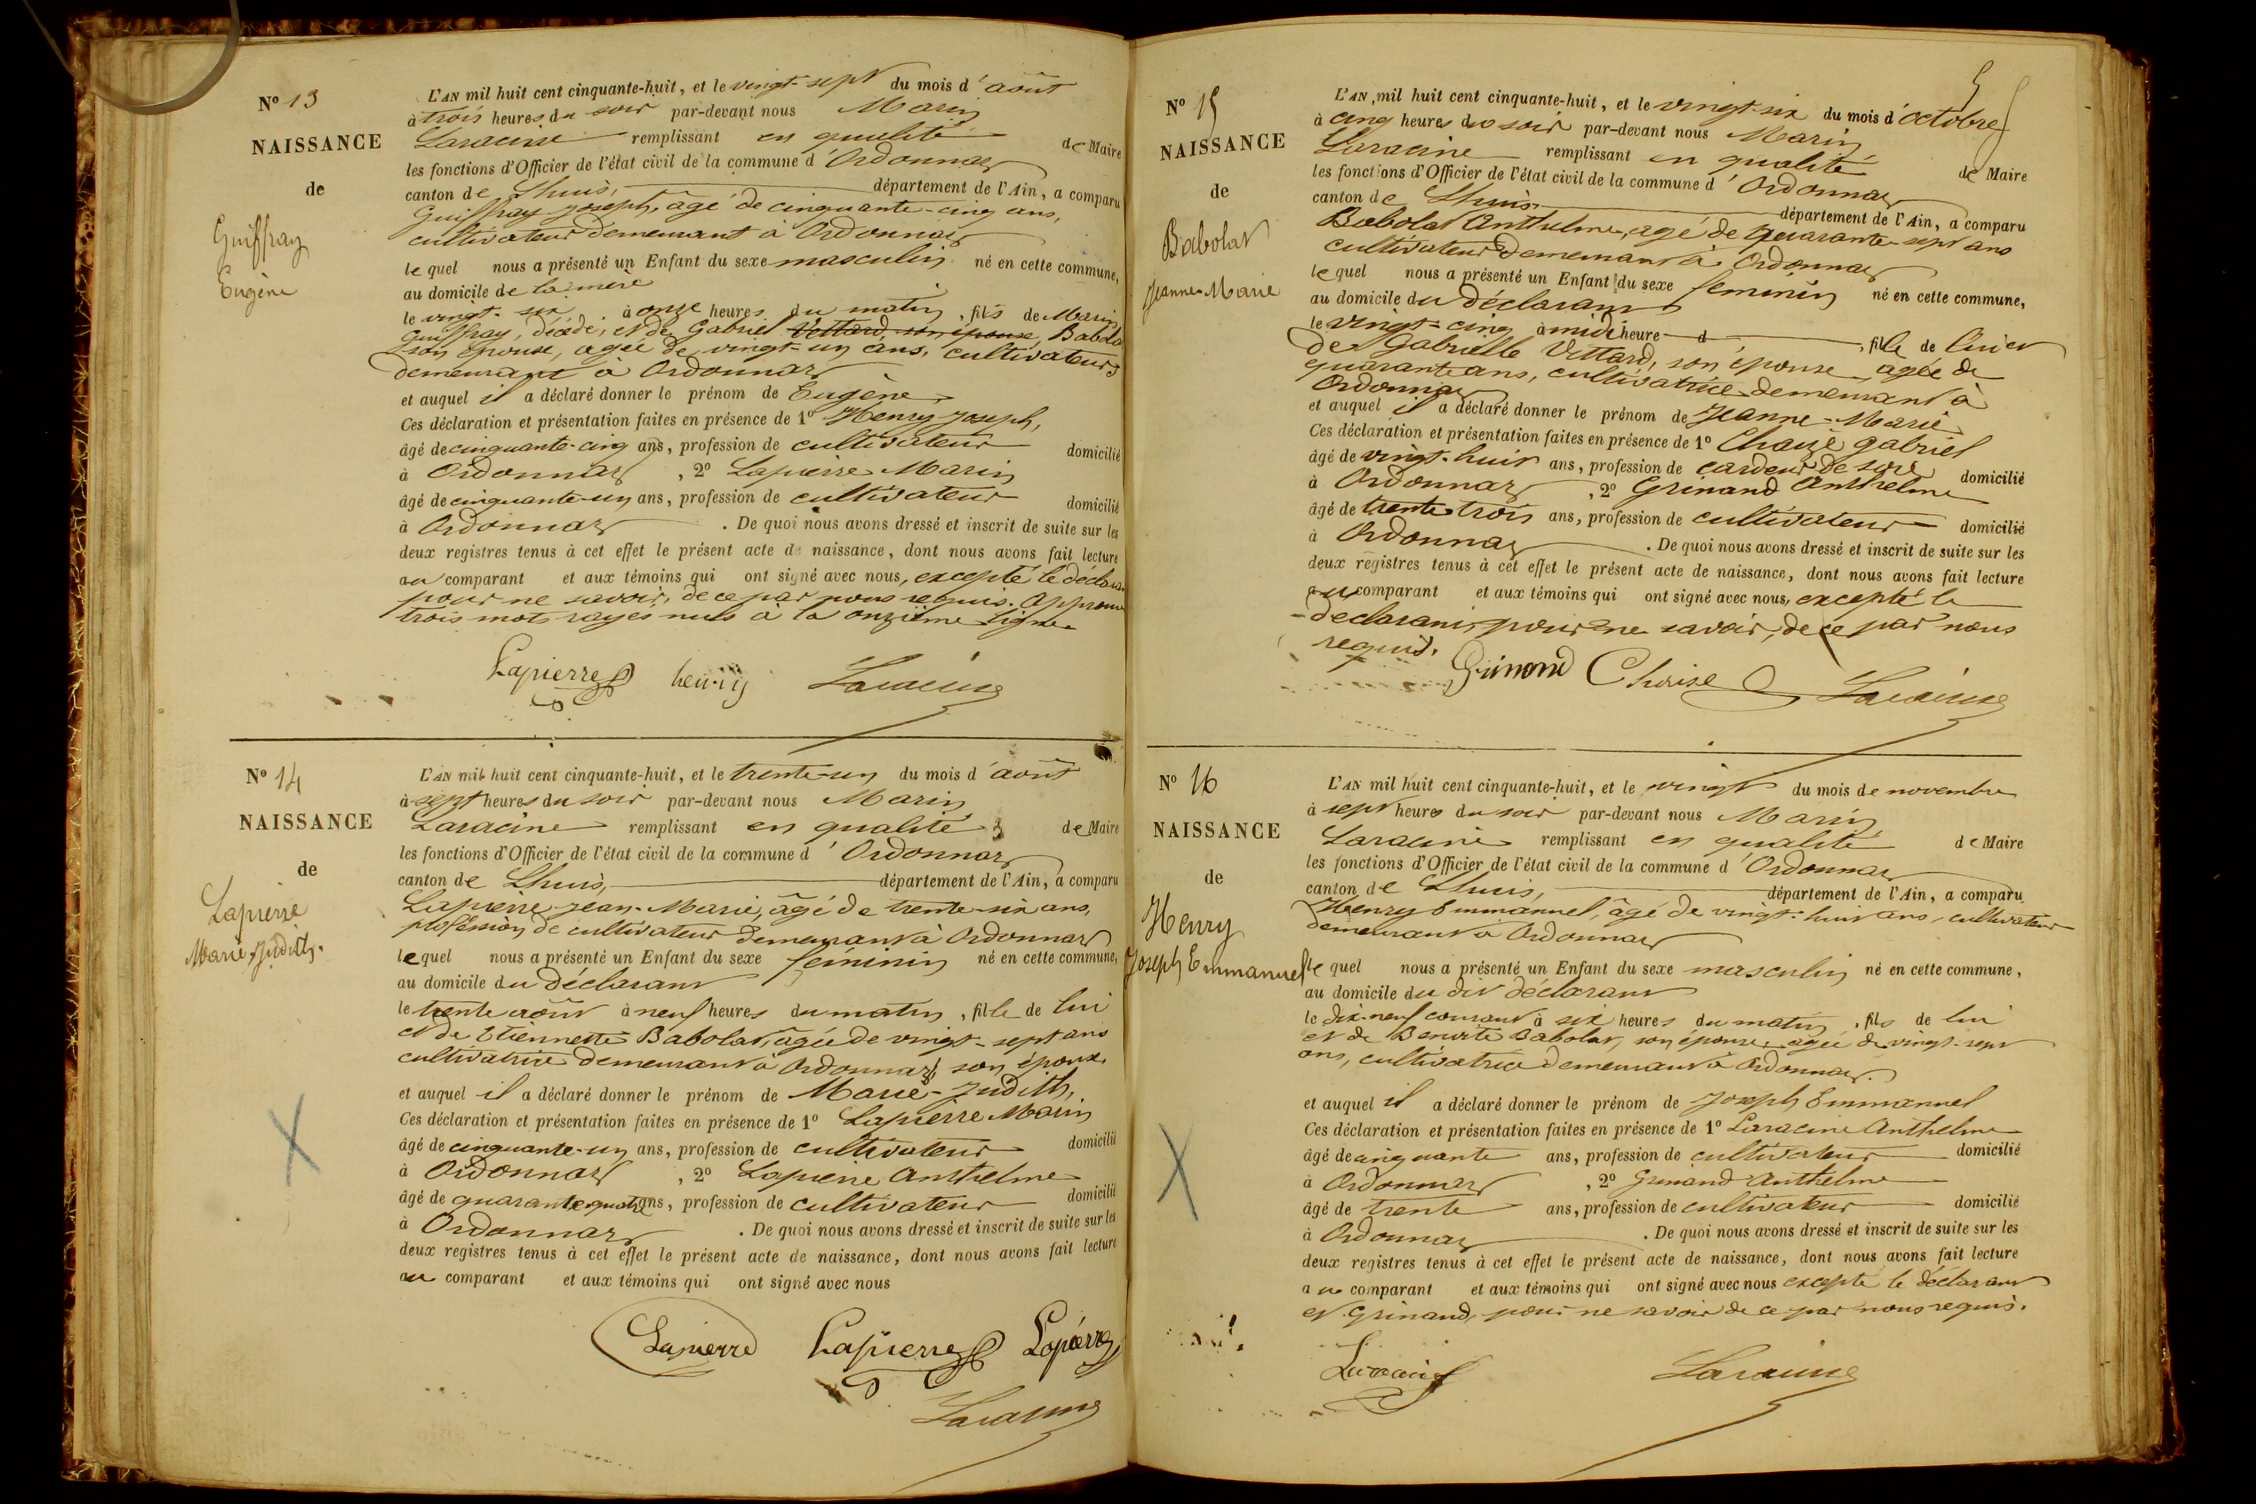 N° 13
NAISSANCE
de
Guiffray
Eugène
L'AN mil huit cent cinquante-huit, et le vingt-sept du mois d'août
à trois heures du soir par-devant nous Marin
Laracine remplissant en qualité de Maire
les fonctions d'Officier de l'état civil de la commune d'Ordonnaz
canton de Lhuis, département de l'Ain, a comparu
Guiffray Joseph, âgé de cinquante-cinq ans,
cultivateur demeurant à Ordonnaz
lequel nous a présenté un Enfant du sexe masculin né en cette commune,
au domicile de la mère
le vingt-six à onze heures du matin, fils de Marin
Guiffray, décédé, et de Gabriel Vettard son épouse, Babola
son épouse, agée de vingt-un ans, cultivateurs
demeurant à Ordonnaz
et auquel il a déclaré donner le prénom de Eugène
Ces déclaration et présentation faites en présence de 1° Henry Joseph,
âgé de cinquante-cinq ans, profession de cultivateur domicilié
à Ordonnaz, 2° Lapierre Marin
âgé de cinquante-un ans, profession de cultivateur domicilié
à Ordonnaz. De quoi nous avons dressé et inscrit de suite sur les
deux registres tenus à cet effet le présent acte de naissance, dont nous avons fait lecture
au comparant et aux témoins qui ont signé avec nous, excepté le déclara
pour ne savoir, de ce par nous requis. Approuvé
trois mots rayés nuls à la onzième ligne
Lapierre henry Laracine
N° 14
NAISSANCE
de
Lapierre
Marie Judith.
L'AN mil huit cent cinquante-huit, et le trente-un du mois d'août
à sept heures du soir par-devant nous Marin
Laracine remplissant en qualité de Maire
les fonctions d'Officier de l'état civil de la commune d'Ordonnaz
canton de Lhuis, département de l'Ain, a comparu
Lapierre Jean-Marie, âgé de trente-six ans,
profession de cultivateur demeurant à Ordonnaz
lequel nous a présenté un Enfant du sexe féminin né en cette commune,
au domicile du déclarant
le trente août à neuf heures du matin, fille de lui
et de Etiennette Babolat, âgée de vingt-sept ans
cultivatrice demeurant à Ordonnaz, son épouse.
et auquel il a déclaré donner le prénom de Marie-Judith,
Ces déclaration et présentation faites en présence de 1° Lapierre Marin
âgé de cinquante-un ans, profession de cultivateur domicilié
à Ordonnaz, 2° Lapierre Anthelme
âgé de quarante-quatre ans, profession de cultivateur domicilié
à Ordonnaz. De quoi nous avons dressé et inscrit de suite sur les
deux registres tenus à cet effet le présent acte de naissance, dont nous avons fait lecture
au comparant et aux témoins qui ont signé avec nous
Lapierre Lapierre Lapierre
Laracine
5
N° 15
NAISSANCE
de
Babolat
Jeanne-Marie
L'AN mil huit cent cinquante-huit, et le vingt-six du mois d'octobre
à cinq heures du soir par-devant nous Marin
Laracine remplissant en qualité de Maire
les fonctions d'Officier de l'état civil de la commune d'Ordonnaz
canton de Lhuis département de l'Ain, a comparu
Babolat Anthelme, agé de quarante-sept ans
cultivateur demeurant à Ordonnaz
lequel nous a présenté un Enfant du sexe féminin né en cette commune,
au domicile du déclarant
le vingt-cinq à midi heure d, fille de lui et
de Gabrielle Vettard, son épouse, agée de
quarante ans, cultivatrice demeurant à
Ordonnaz
et auquel il a déclaré donner le prénom de Jeanne-Marie
Ces déclaration et présentation faites en présence de 1° Gabriel
âgé de vingt-huit ans, profession de cardeur de soie domicilié
à Ordonnaz, 2° Grinand Anthelme
âgé de trente-trois ans, profession de cultivateur domicilié
à Ordonnaz. De quoi nous avons dressé et inscrit de suite sur les
deux registres tenus à cet effet le présent acte de naissance, dont nous avons fait lecture
au comparant et aux témoins qui ont signé avec nous, excepté le
déclarant, pour ne savoir, de ce par nous
requis.
Grinand Laracine
N° 16
NAISSANCE
de
Henry
Joseph Emmanuel
L'AN mil huit cent cinquante-huit, et le vingt du mois de novembre
à sept heures du soir par-devant nous Marin
Laracine remplissant en qualité de Maire
les fonctions d'Officier de l'état civil de la commune d'Ordonnaz
canton de Lhuis, département de l'Ain, a comparu
Henry Emmanuel, âgé de vingt-huit ans, cultivateur
demeurant à Ordonnaz
lequel nous a présenté un Enfant du sexe masculin né en cette commune,
au domicile du dit déclarant
le dix-neuf courant à six heures du matin, fils de lui
et de Benoite Babolat, son épouse, agée de vingt-sept
ans, cultivatrice demeurant à Ordonnaz.
et auquel il a déclaré donner le prénom de Joseph Emmanuel
Ces déclaration et présentation faites en présence de 1° Laracine Anthelme
âgé de cinquante ans, profession de cultivateur domicilié
à Ordonnaz, 2° Grinand Anthelme
âgé de trente ans, profession de cultivateur domicilié
à Ordonnaz. De quoi nous avons dressé et inscrit de suite sur les
deux registres tenus à cet effet le présent acte de naissance, dont nous avons fait lecture
au comparant et aux témoins qui ont signé avec nous excepté le déclarant
et Grinand, pour ne savoir de ce par nous requis.
Laracine Laracine